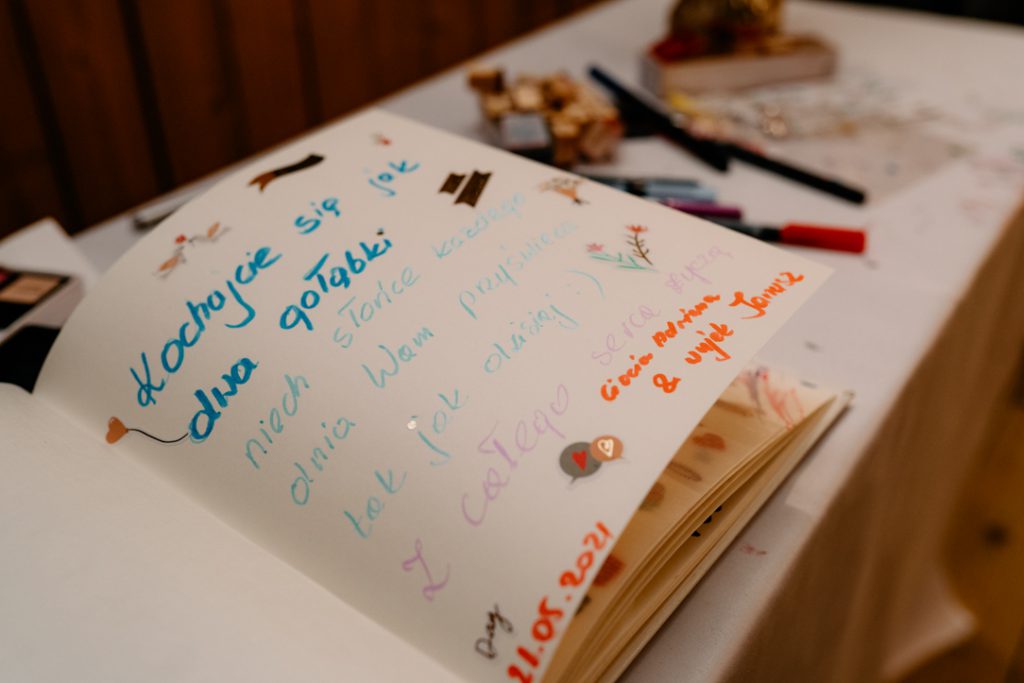 Kochajcie się jak
dwa gołąbki
niech słońce każdego
dnia Wam przyświeca
tak jak dzisiaj :)
Z całego serca życzą
Ciocia Adriana
& wujek Janusz
Day
21.05.2021